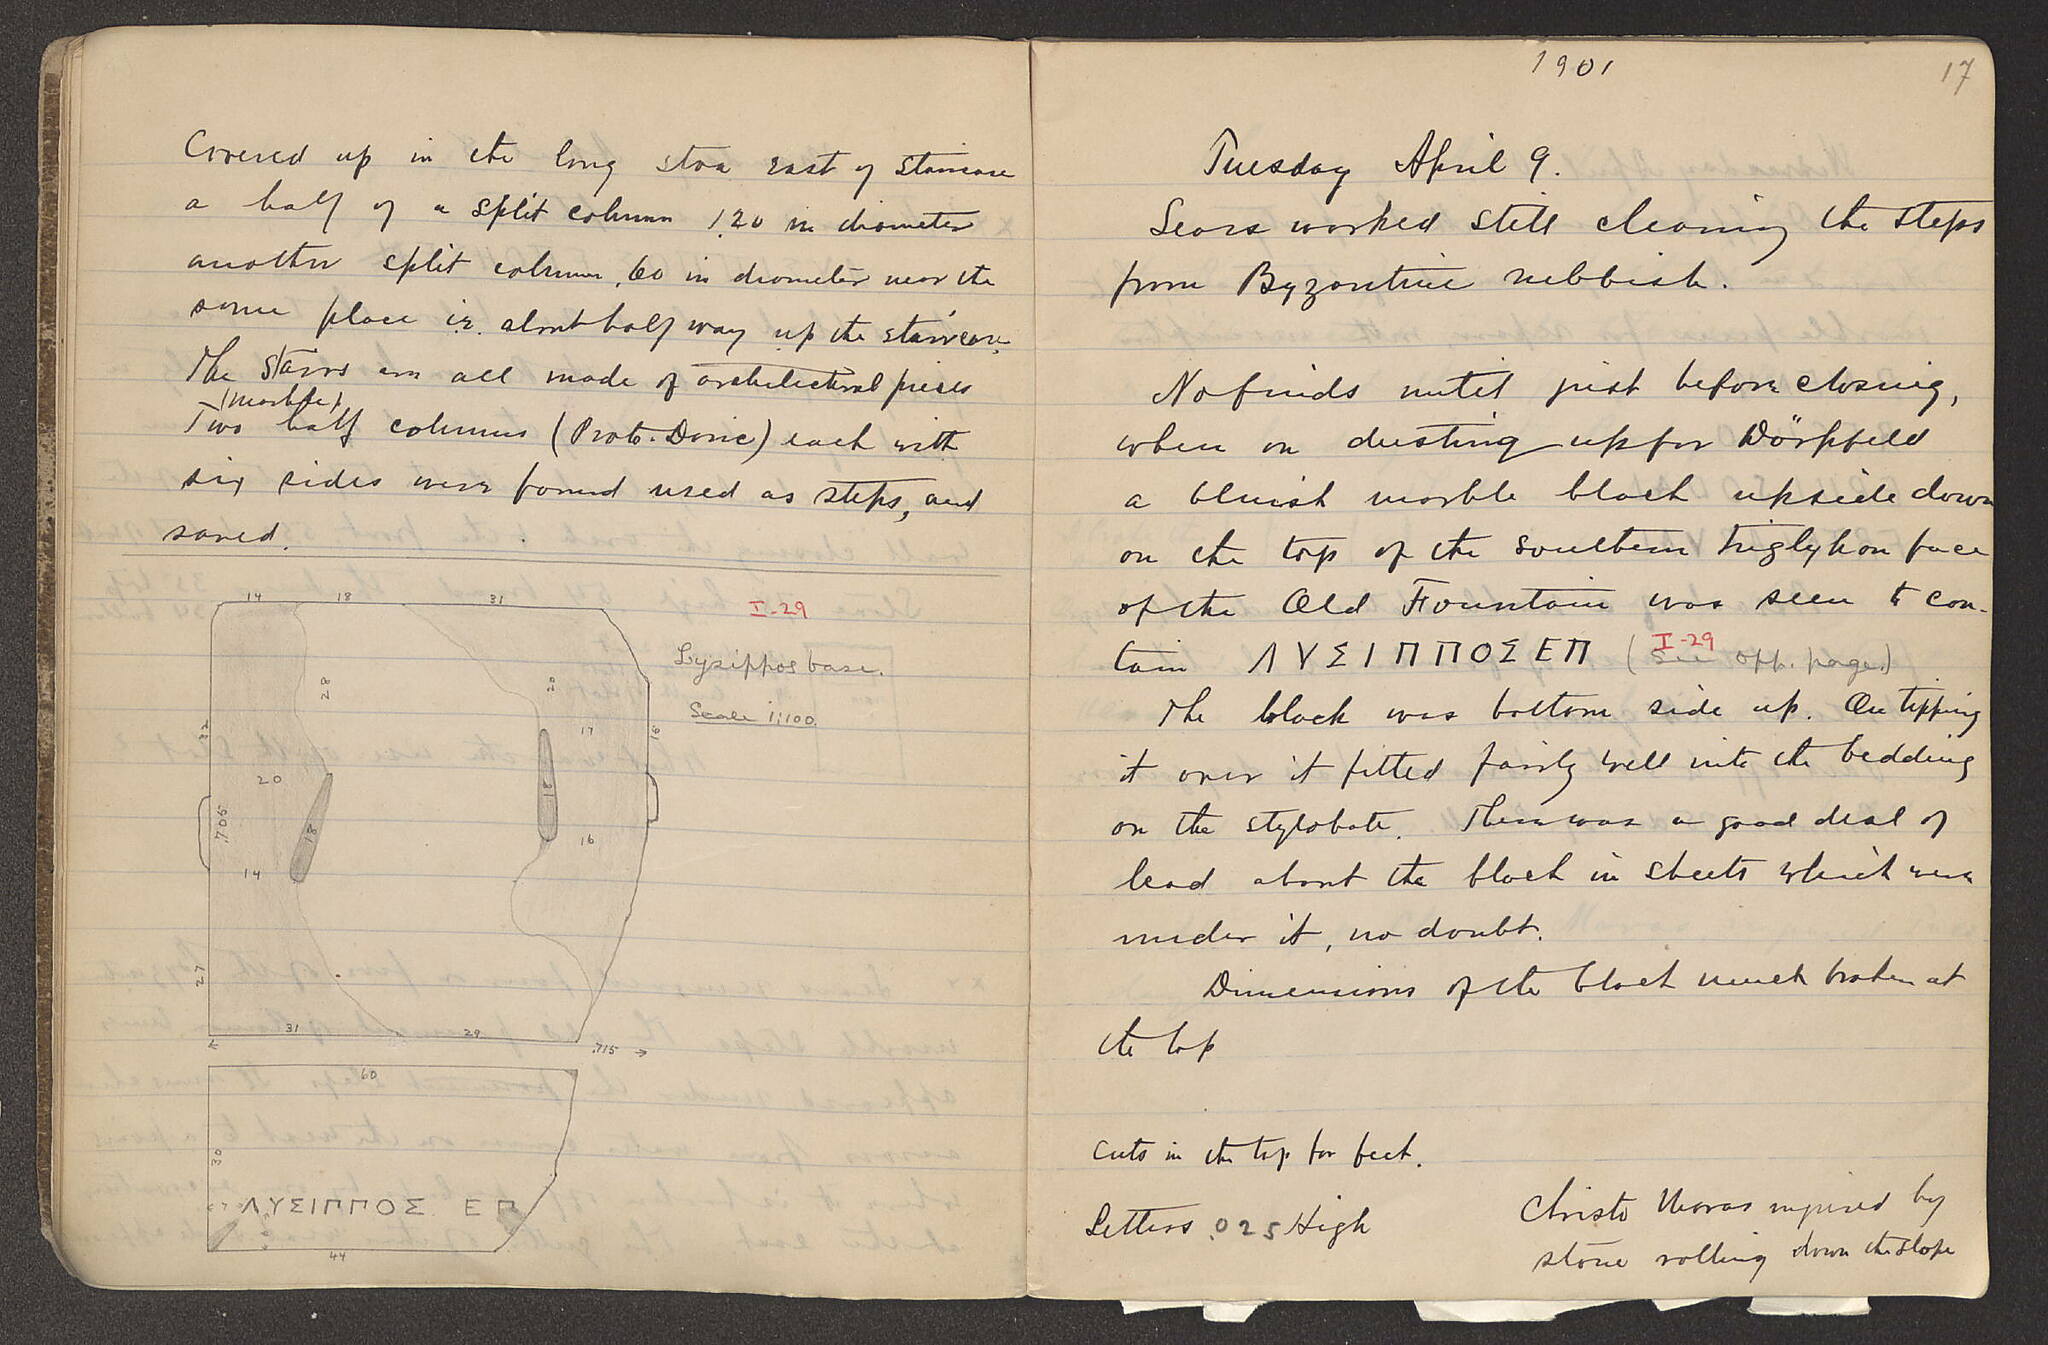 Covered up in the long stoa east of staircase
a half of a split column 1.20 in diameter
another split column .60 in diameter near the
same place i.e. about half way up the staircase.
The stairs are all made of architectural pieces
(marble)
Two half columns (Proto-Doric) each with
six sides were found used as steps, and
saved.
14 18 31
I-29
Lysippos base.
Scale 1:100.
28
20
32
17
16
20
18
18
.705
16
14
27
31 29
.715
60
30
ΛΥΣΙΠΠΟΣ ΕΠ
44
1901
17
Tuesday April 9.
Sears worked still cleaning the steps
from Byzantine rubbish.
No finds until just before closing,
when on dusting up for Dörpfeld
a bluish marble block upside down
on the top of the southern triglyphon face
of the Old Fountain was seen to con-
tain ΛΥΣΙΠΠΟΣΕΠ (see opp. page)
I-29
The block was bottom side up. On tipping
it over it fitted fairly well into the bedding
on the stylobate. There was a good deal of
lead about the block in sheets which were
under it, no doubt.
Dimensions of the block much broken at
the top
Cuts in the top for feet.
Letters .025 High
Christo injured by
stone rolling down the slope